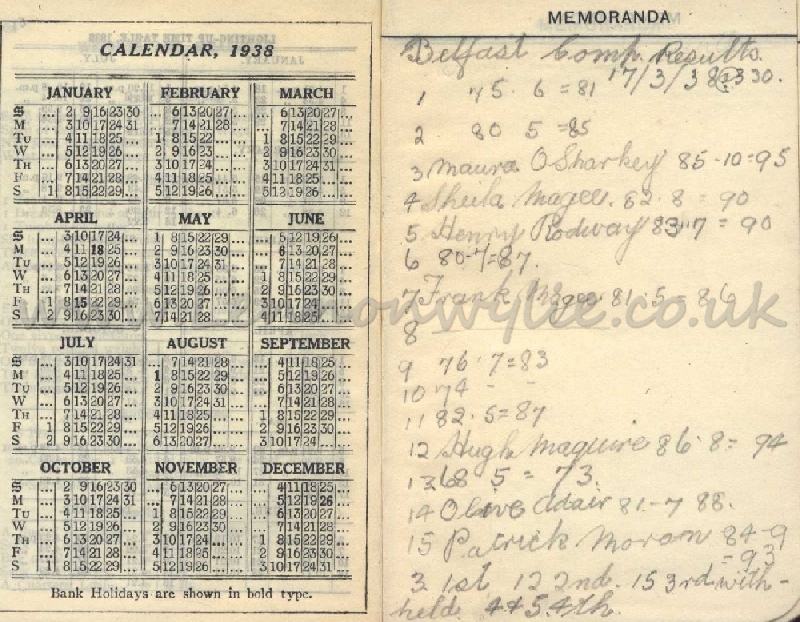 CALENDAR, 1938
JANUARY FEBRUARY MARCH
S ... 2 9 16 23 30 ... 6 13 20 27 ... ... 6 13 20 27 ...
M ... 3 10 17 24 31 ... 7 14 21 28 ... ... 7 14 21 28 ...
TU ... 4 11 18 25 ... 1 8 15 22 ... ... 1 8 15 22 29 ...
W ... 5 12 19 26 ... 2 9 16 23 ... ... 2 9 16 23 30 ...
TH ... 6 13 20 27 ... 3 10 17 24 ... ... 3 10 17 24 31 ...
F ... 7 14 21 28 ... 4 11 18 25 ... ... 4 11 18 25 ... ...
S 1 8 15 22 29 ... 5 12 19 26 ... ... 5 12 19 26 ... ...
APRIL MAY JUNE
S ... 3 10 17 24 ... 1 8 15 22 29 ... ... 5 12 19 26 ...
M ... 4 11 18 25 ... 2 9 16 23 30 ... ... 6 13 20 27 ...
TU ... 5 12 19 26 ... 3 10 17 24 31 ... ... 7 14 21 28 ...
W ... 6 13 20 27 ... 4 11 18 25 ... ... 1 8 15 22 29 ...
TH ... 7 14 21 28 ... 5 12 19 26 ... ... 2 9 16 23 30 ...
F 1 8 15 22 29 ... 6 13 20 27 ... ... 3 10 17 24 ... ...
S 2 9 16 23 30 ... 7 14 21 28 ... ... 4 11 18 25 ... ...
JULY AUGUST SEPTEMBER
S ... 3 10 17 24 31 ... 7 14 21 28 ... ... 4 11 18 25 ...
M ... 4 11 18 25 ... 1 8 15 22 29 ... ... 5 12 19 26 ...
TU ... 5 12 19 26 ... 2 9 16 23 30 ... ... 6 13 20 27 ...
W ... 6 13 20 27 ... 3 10 17 24 31 ... ... 7 14 21 28 ...
TH ... 7 14 21 28 ... 4 11 18 25 ... ... 1 8 15 22 29 ...
F 1 8 15 22 29 ... 5 12 19 26 ... ... 2 9 16 23 30 ...
S 2 9 16 23 30 ... 6 13 20 27 ... ... 3 10 17 24 ... ...
OCTOBER NOVEMBER DECEMBER
S ... 2 9 16 23 30 ... 6 13 20 27 ... ... 4 11 18 25 ...
M ... 3 10 17 24 31 ... 7 14 21 28 ... ... 5 12 19 26 ...
TU ... 4 11 18 25 ... 1 8 15 22 29 ... ... 6 13 20 27 ...
W ... 5 12 19 26 ... 2 9 16 23 30 ... ... 7 14 21 28 ...
TH ... 6 13 20 27 ... 3 10 17 24 ... ... 1 8 15 22 29 ...
F ... 7 14 21 28 ... 4 11 18 25 ... ... 2 9 16 23 30 ...
S 1 8 15 22 29 ... 5 12 19 26 ... ... 3 10 17 24 31 ...
Bank Holidays are shown in bold type.
MEMORANDA
Belfast Comp. Results.
17/3/38 @ 3 30.
1 75. 6 = 81
2 80 5 = 85
3 Maura O Sharkey 85-10 = 95
4 Sheila Magee. 82. 8 = 90
5 Henry Rodway 83 7 = 90
6 80-7 = 87.
7 Frank Magee 81. 5 = 86
8
9 76. 7 = 83
10 74 - -
11 82. 5 = 87
12 Hugh Maguire 86. 8 = 94
13 68 5 = 73.
14 Olive Adair 81-7 88.
15 Patrick Moran 84-9
= 93
3 1st 12 2nd. 15 3rd with-
held. 4+5 4th.